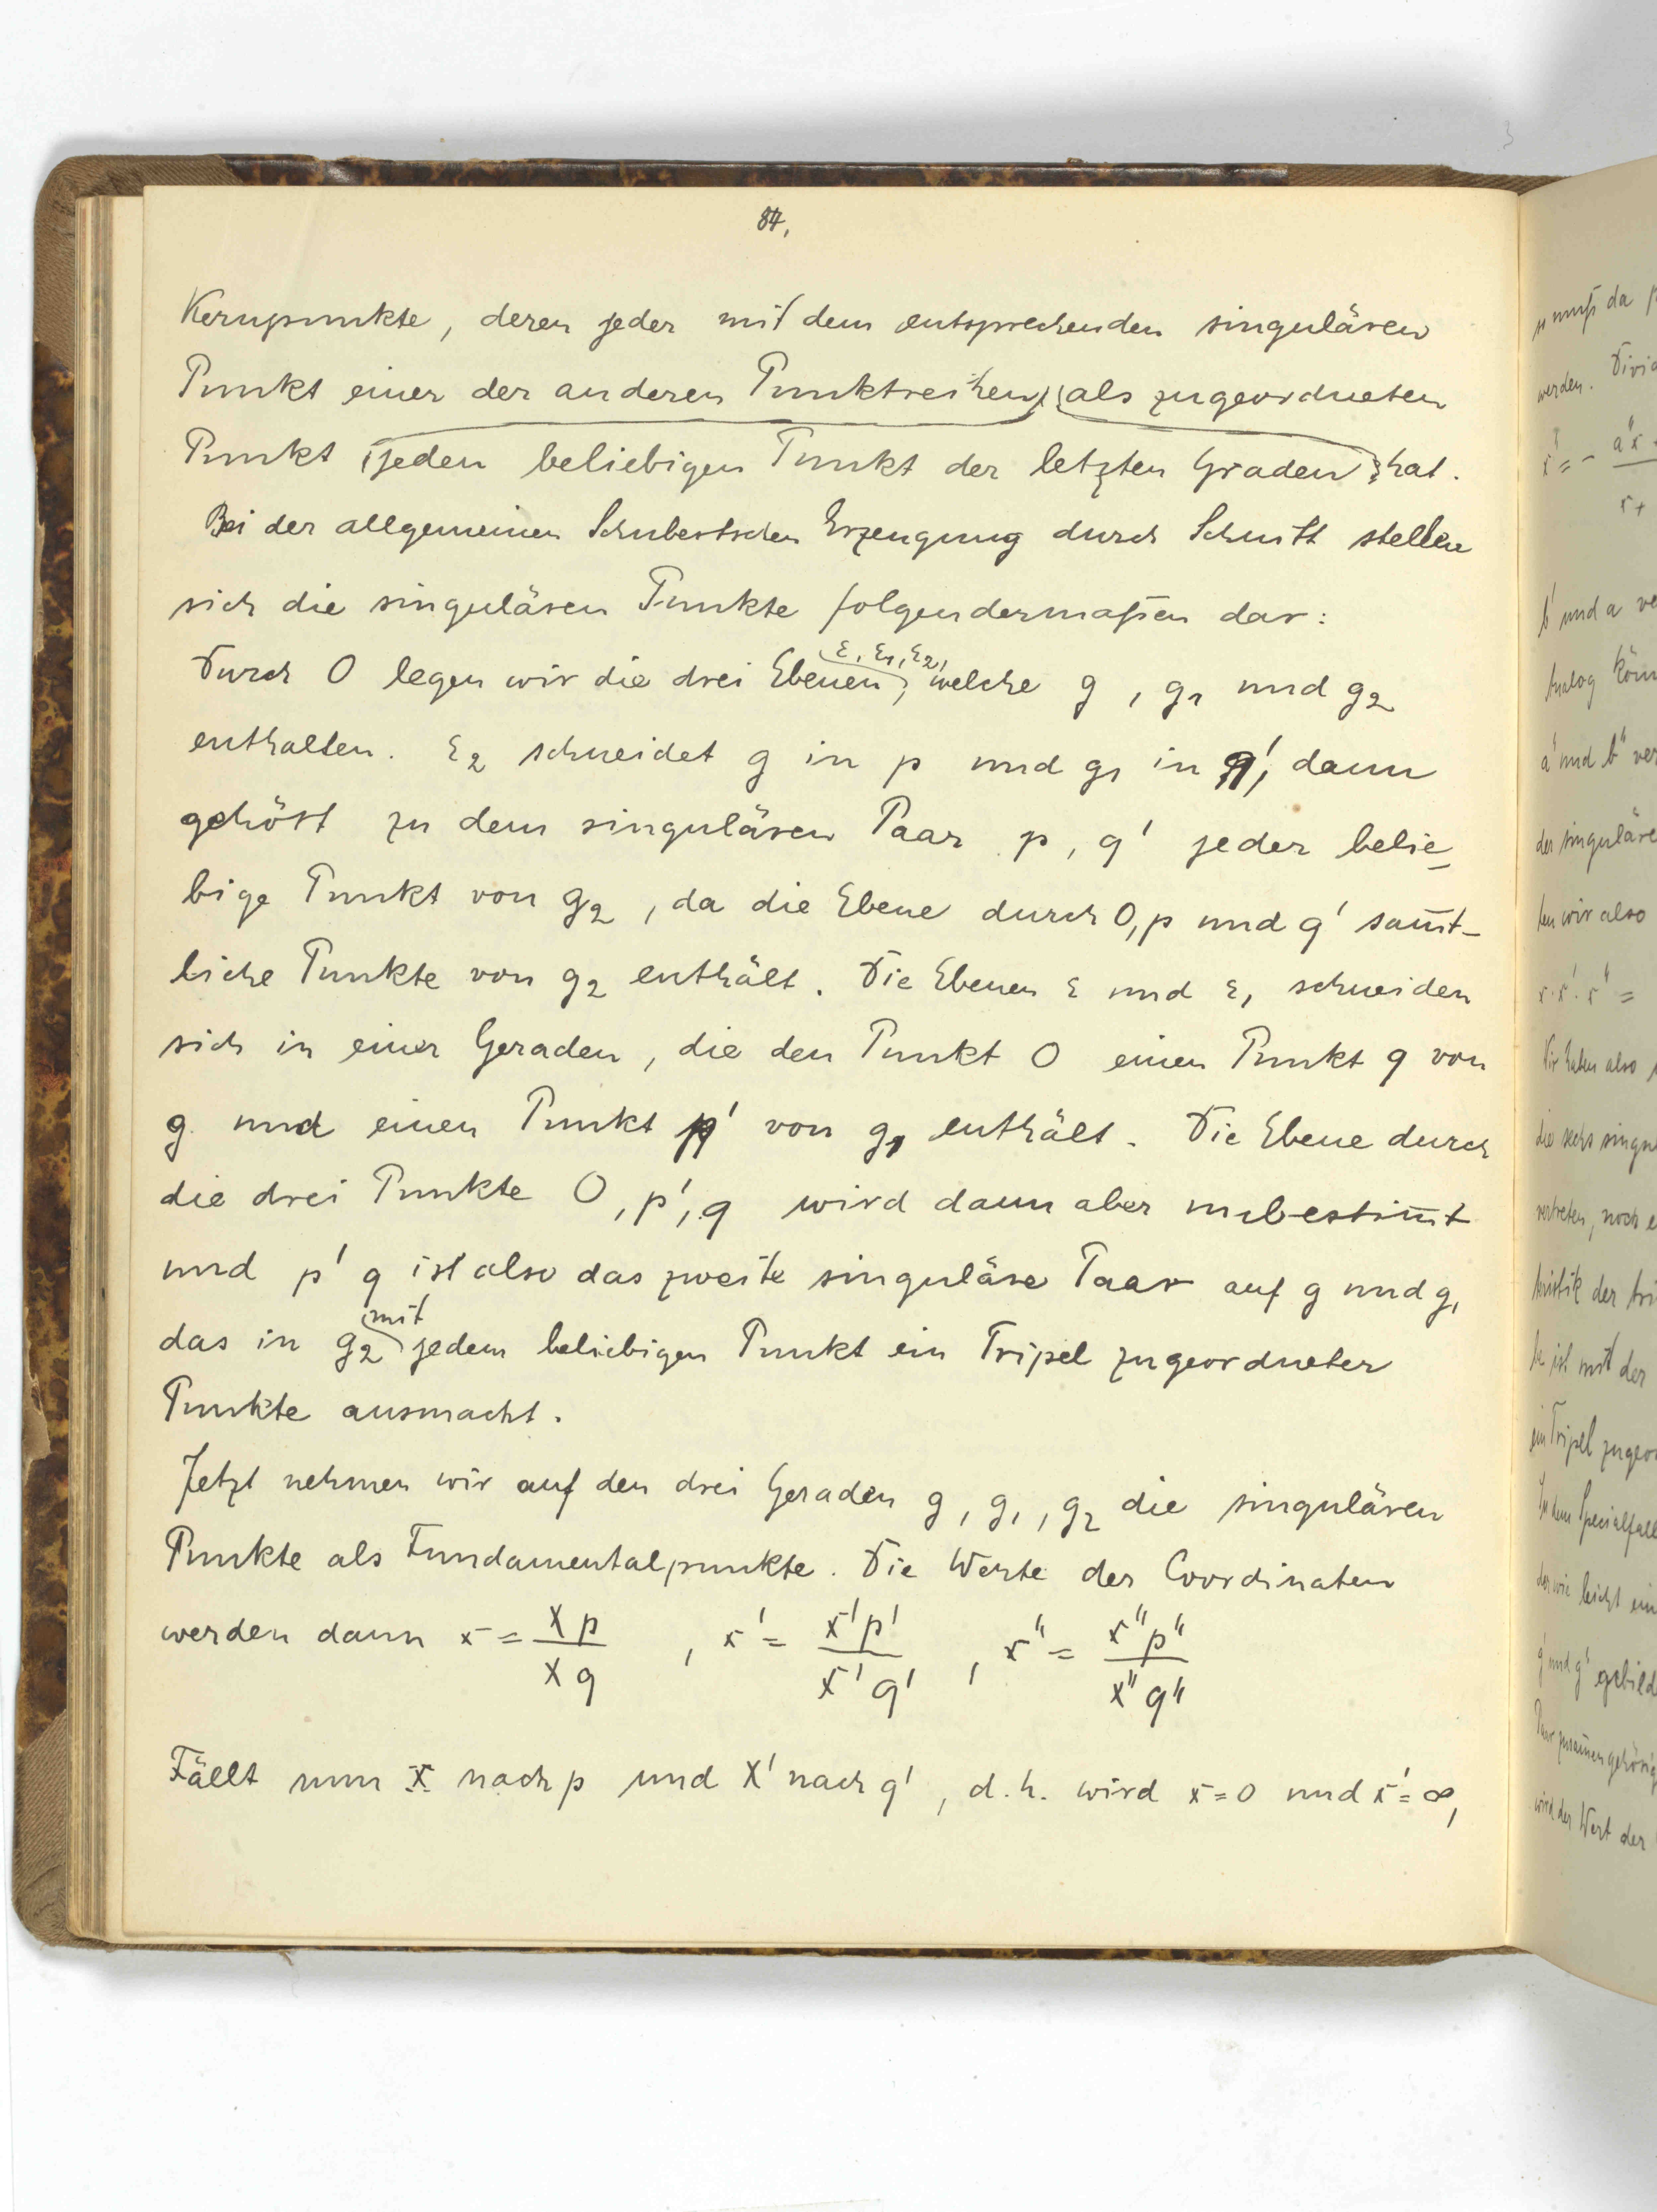 84.
Kernpunkte, deren jeder mit dem entsprechenden singulären
Punkt einer der anderen Punktreihen als zugeordneten
Punkt jeden beliebigen Punkt der letzten Graden hat.
Bei der allgemeinen Schubertschen Erzeugung durch Schnitt stellen
sich die singulären Punkte folgendermaßen dar:
Durch O legen wir die drei Ebenen ε, ε₁, ε₂, welche g, g₁ und g₂
enthalten. ε₂ schneidet g in p und g₁ in q', dann
gehört zu dem singulären Paar p, q' jeder belie=
bige Punkt von g₂, da die Ebene durch O, p und q' sam̄t-
liche Punkte von g₂ enthält. Die Ebenen ε und ε₁ schneiden
sich in einer Geraden, die den Punkt O einen Punkt q von
g und einen Punkt p' von g₁ enthält. Die Ebene durch
die drei Punkte O, p', q wird dann aber unbestim̄t
und p' q ist also das zweite singuläre Paar auf g und g₁
das in g₂ mit jedem beliebigen Punkt ein Tripel zugeordneter
Punkte ausmacht.
Jetzt nehmen wir auf den drei Geraden g, g₁, g₂ die singulären
Punkte als Fundamentalpunkte. Die Werte der Coordinaten
werden dann x = xp/xq, x' = x'p'/x'q', x'' = x''p''/x''q''
Fällt nun x nach p und x' nach q', d.h. wird x=0 und x'=∞,
so muß da
werden. Divi
b' und a ve
Analog kön
a' und b'' ver
der singuläre
ten wir also
x·x'·x'' =
Wir haben also
die sechs singu
vertreten, noch e
ist mit der
ein Tripel zugeor
In dem Specialfall
der wie leicht ein
g und g' gebild
Paar zusam̄engehörig
wird der Wert der